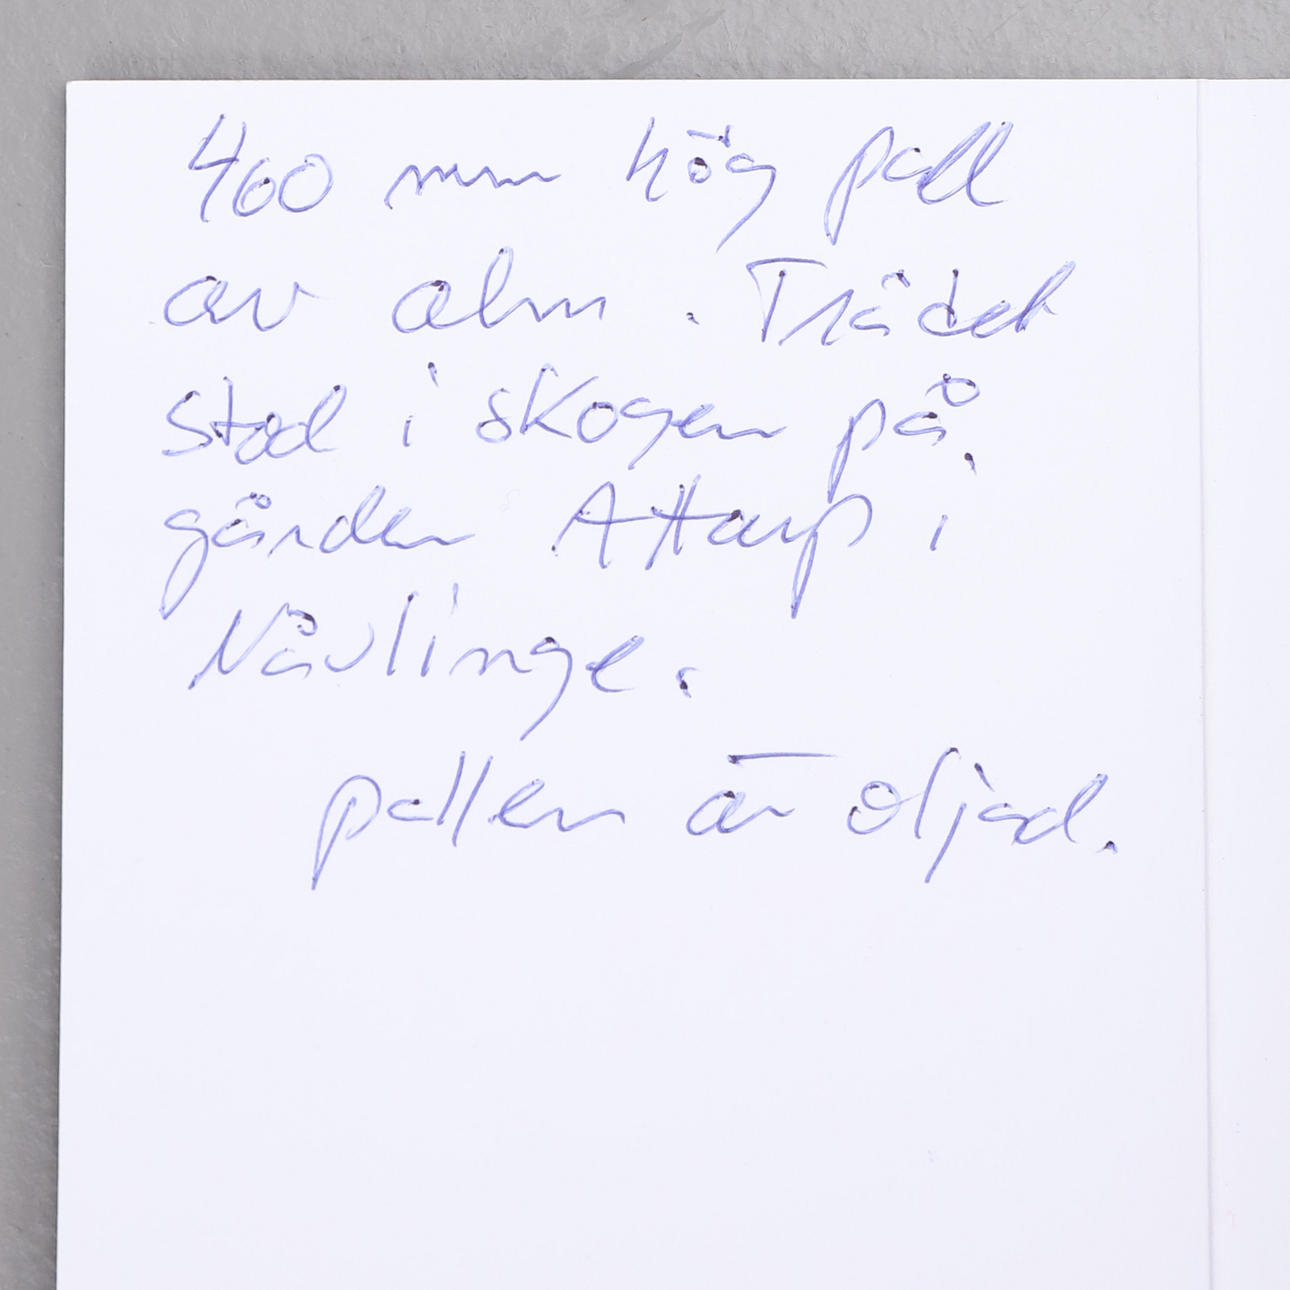 460 mm hög pall
av alm. Trädet
stod i skogen på
gården Attarp i
Nävlinge.
pallen är oljad.